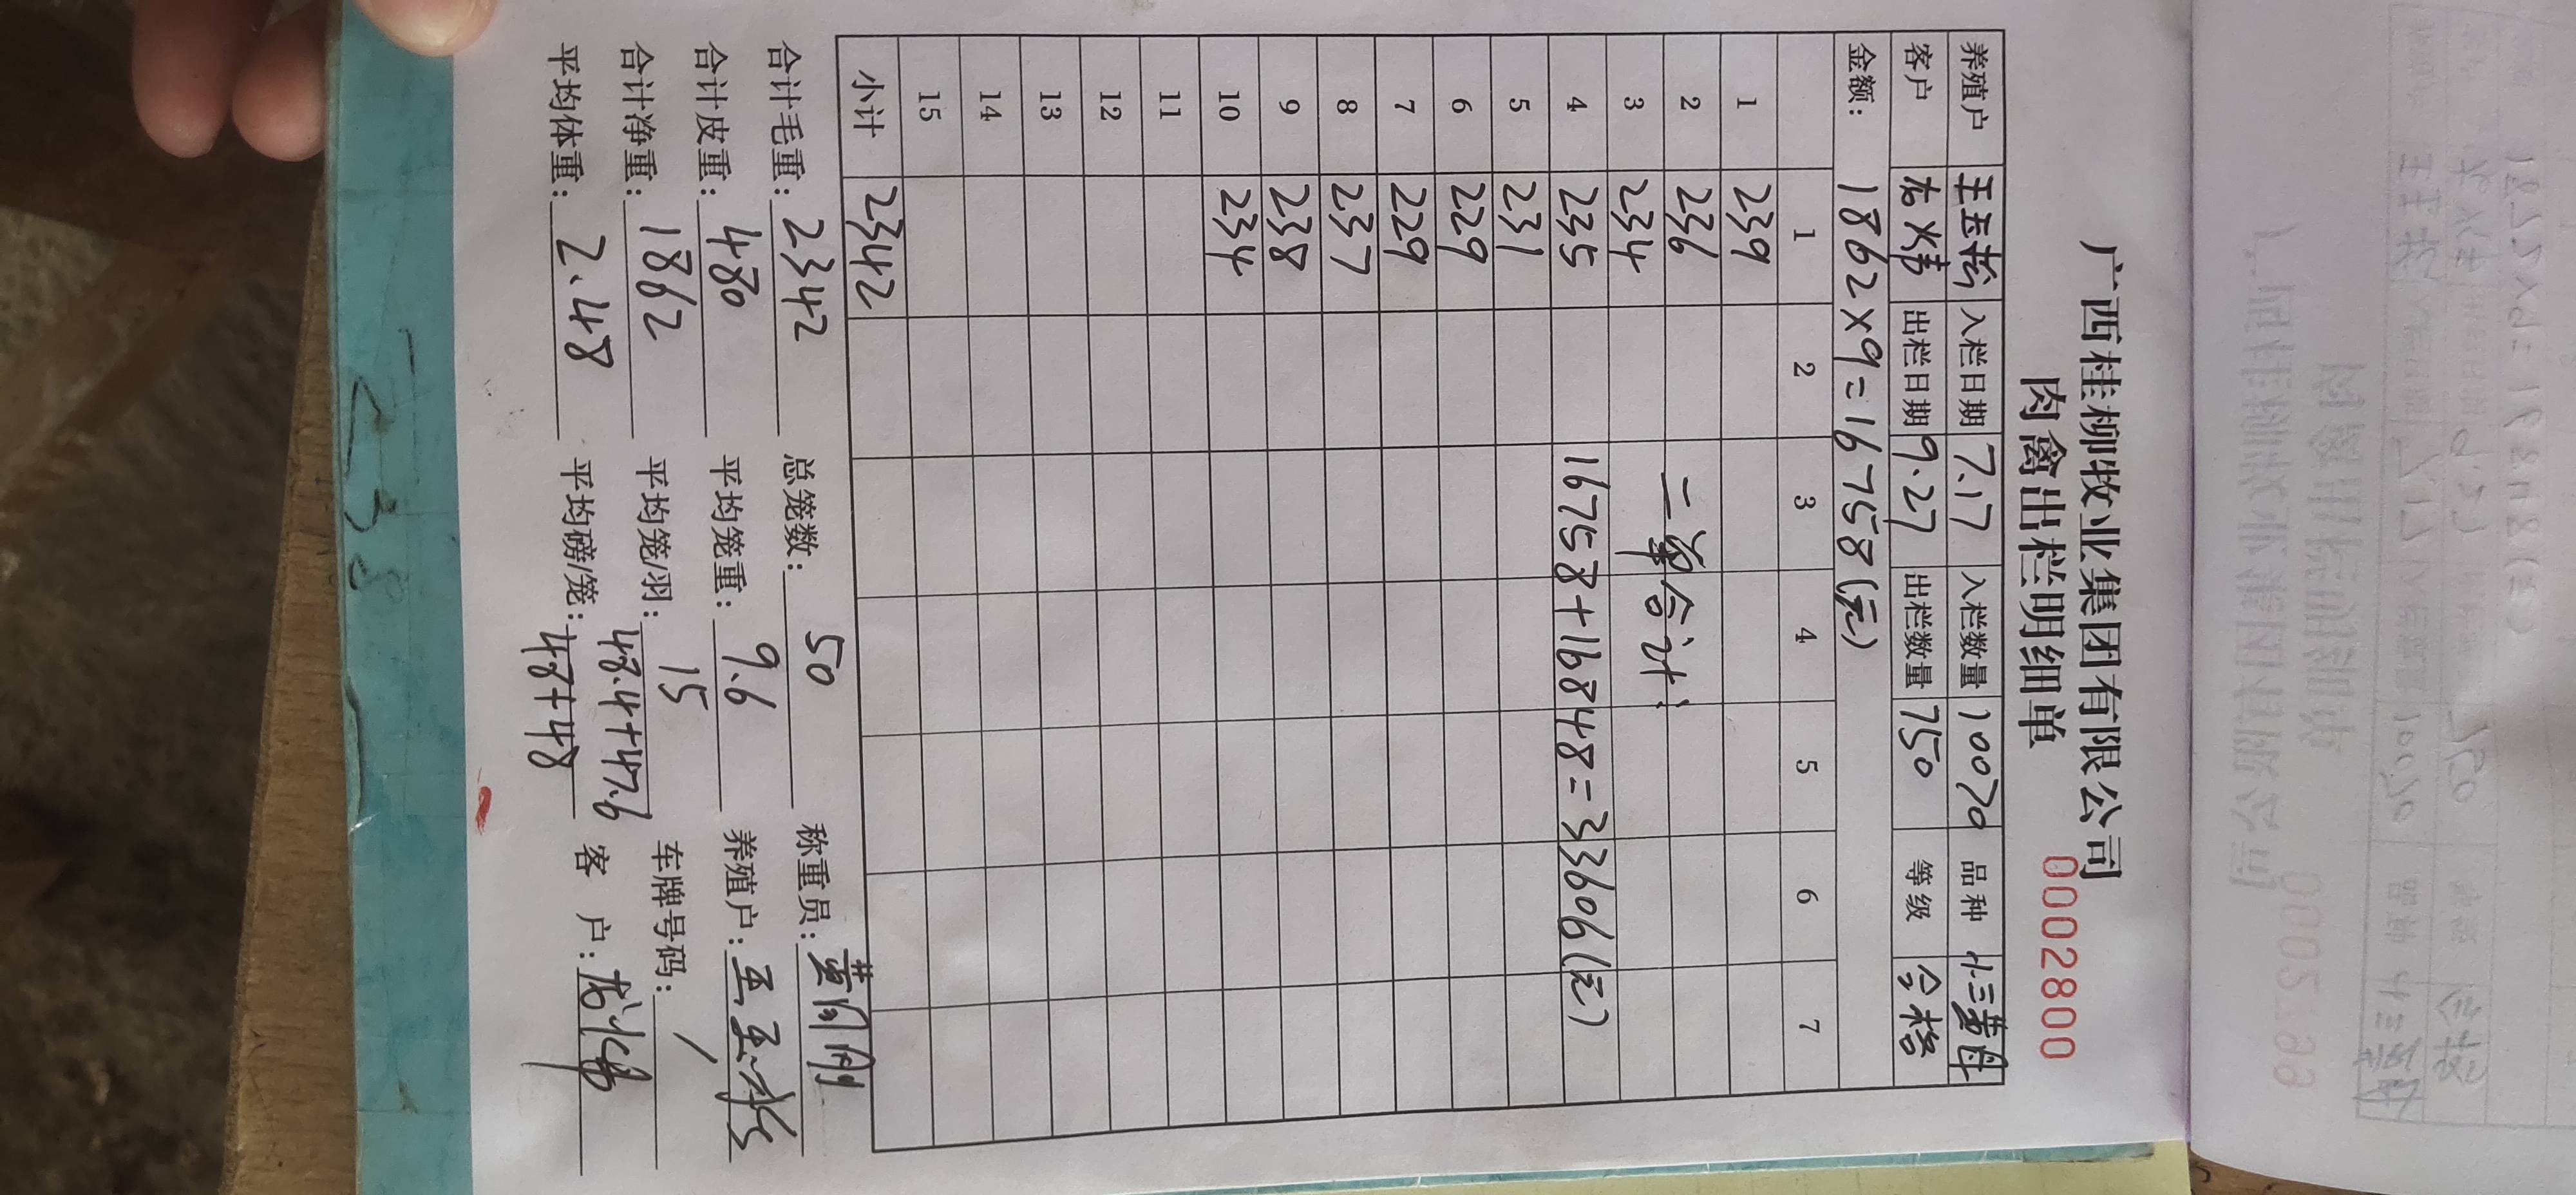 广西桂柳牧业集团有限公司
肉禽出栏明细单 0002800
养殖户 王玉松 入栏日期 7.17 入栏数量 10070 品种 小三黄母
客户 龙炜 出栏日期 9.27 出栏数量 750 等级 合格
金额: 1862×9=16758(元)
1 2 3 4 5 6 7
1 239
2 236 二单合计:
3 234
4 235 16758+16848=33606(元)
5 231
6 229
7 229
8 237
9 238
10 234
11
12
13
14
15
小计 2342
合计毛重: 2342 总笼数: 50 称重员:
合计皮重: 480 平均笼重: 9.6 养殖户: 王玉松
合计净重: 1862 平均笼/羽: 15 车牌号码: /
48.4+47.6
平均体重: 2.48 平均磅/笼: 48+48 客户: 龙炜